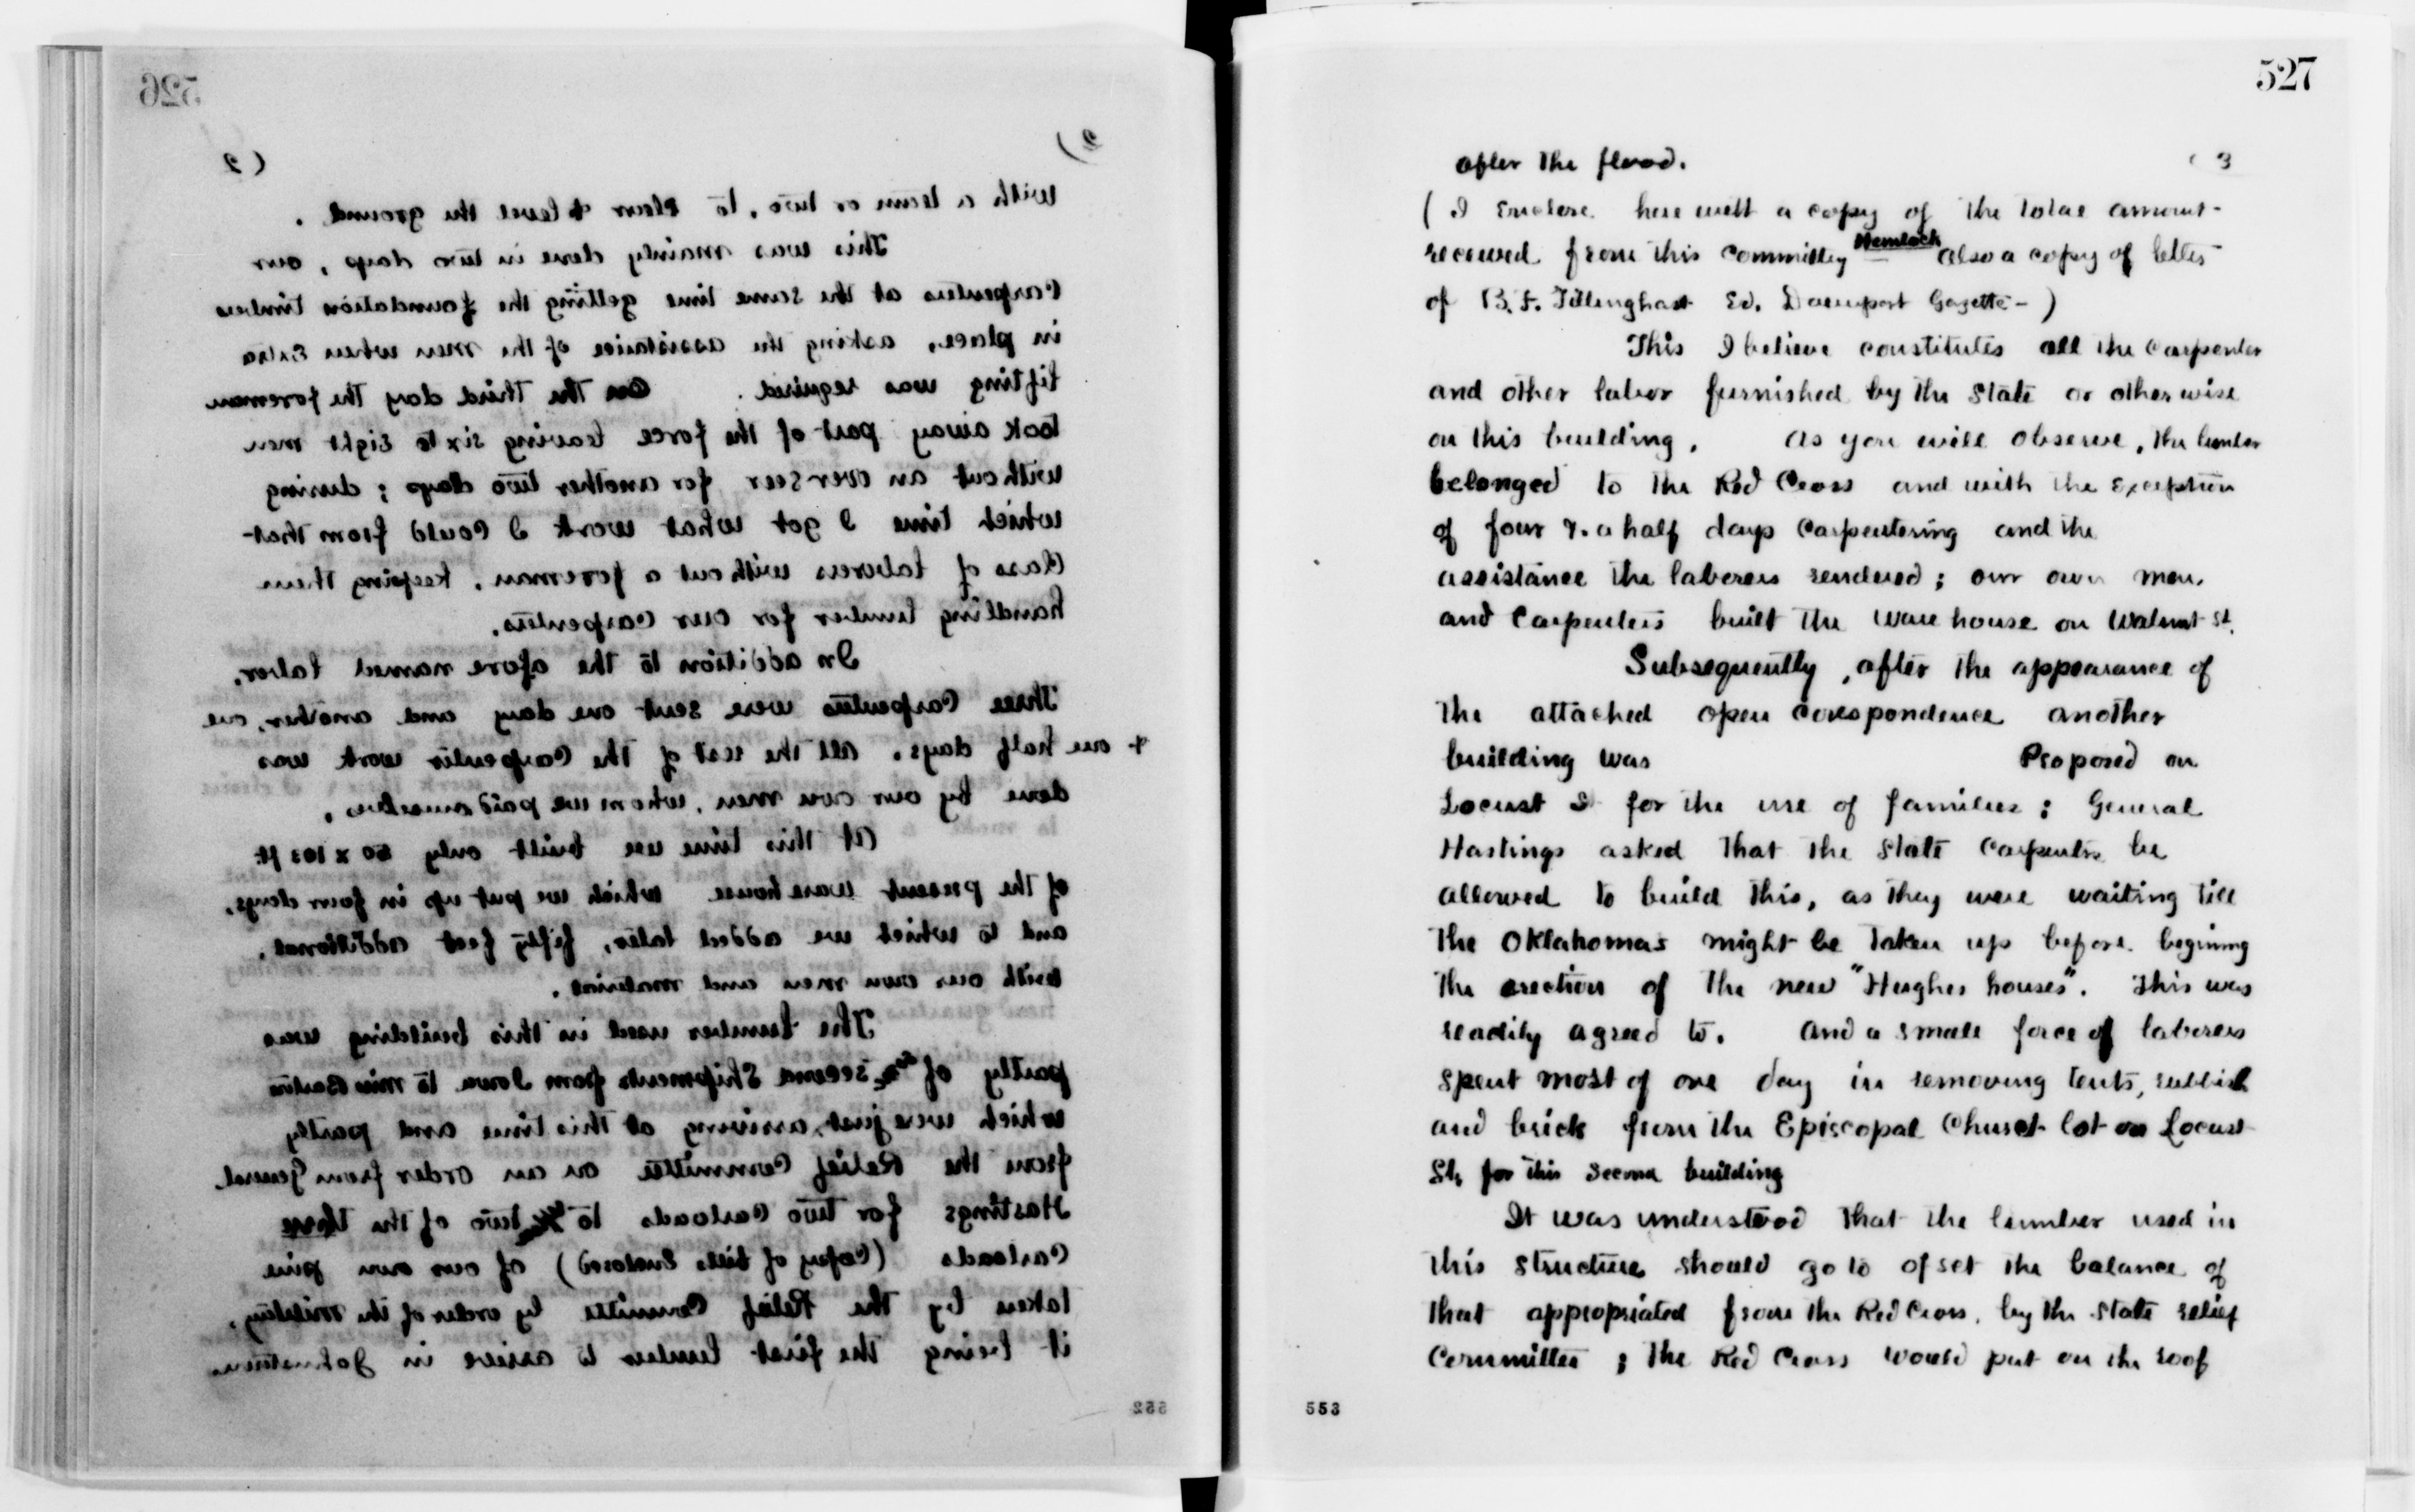 526
( 2
2 )
with a team or two, to clear & level the ground.
This was mainly done in two days, our
Carpenters at the same time getting the foundation timbers
in place, asking the assistance of the men when Extra
lifting was required. On the Third day the foreman
took away part of the force leaving six to Eight men
without an overseer for another two days; during
which time I got what work I could from that
Class of laborers without a foreman, keeping them
handling lumber for our Carpenters.
In addition to the afore named labor,
Three Carpenters were sent one day and another, one
& one half days. All the rest of the Carpenter work was
done by our own men, whom we paid ourselves.
At this time we built only 50 x 103 ft
of the present ware house which we put up in four days,
and to which we added later, fifty feet additional,
with our own men and material.
The lumber used in this building was
partly of second Shipments from Iowa to Miss Barton
which were just arriving at this time and partly
from the Relief Committee on an order from General
Hastings for two Carloads to two of the three
Carloads (Copy of bills Enclosed) of our own pine
taken by the Relief Committee by order of the military,
it being the first lumber to arrive in Johnstown
552
527
( 3
after the flood.
( I Enclose here with a copy of the total amount
received from this Committey Hemlock also a copy of letter
of B. F. Tillinghast Ed. Davenport Gazette - )
This I believe constitutes all the Carpenter
and other labor furnished by the State or other wise
on this building. As you will observe, the lumber
belonged to the Red Cross and with the Exception
of four & a half days Carpentering and the
assistance the laborers rendered; our own men
and Carpenters built the Ware house on Walnut St.
Subsequently, after the appearance of
the attached open corespondence another
building was Proposed on
Locust St for the use of families; General
Hastings asked that the State Carpenters be
allowed to build this, as they were waiting till
the Oklahomas might be taken up before begining
the erection of the new "Hughes houses". This was
readily agreed to. And a small force of laborers
spent most of one day in removing tents, rubbish
and brick from the Episcopal Church lot on Locust
St. for this second building
It was understood that the lumber used in
this structure should go to ofset the balance of
that appropriated from the Red Cross, by the State relief
Committee; the Red Cross would put on the roof
553